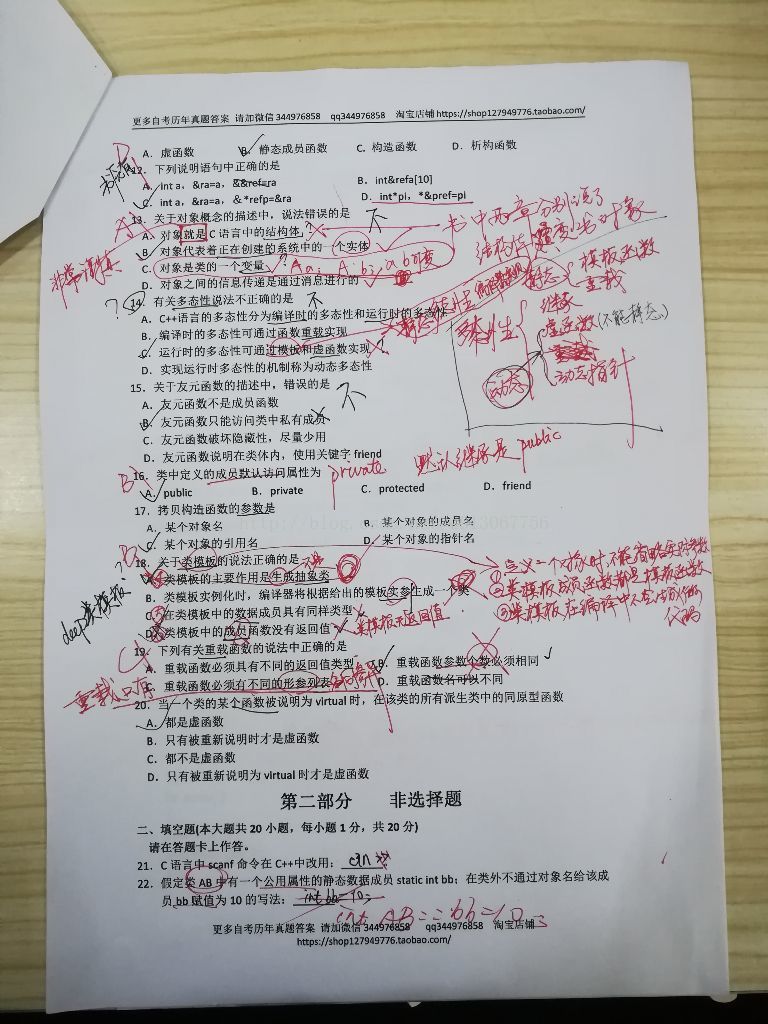 更多自考历年真题答案 请加微信 344976858 qq344976858 淘宝店铺 https://shop127949776.taobao.com/
A. 虚函数 B. 静态成员函数 C. 构造函数 D. 析构函数
12. 下列说明语句中正确的是
A. int a, &ra=a, &&ref=ra B. int&refa[10]
C. int a, &ra=a, &*refp=&ra D. int*pi, *&pref=pi
13. 关于对象概念的描述中，说法错误的是 不
A. 对象就是 C 语言中的结构体
B. 对象代表着正在创建的系统中的一个实体
C. 对象是类的一个变量
D. 对象之间的信息传递是通过消息进行的
? 14. 有关多态性说法不正确的是 不
A. C++语言的多态性分为编译时的多态性和运行时的多态性
B. 编译时的多态性可通过函数重载实现
C. 运行时的多态性可通过模板和虚函数实现
D. 实现运行时多态性的机制称为动态多态性
模板函数
重载
继承
虚函数(不能静态)
动态
动态指针
15. 关于友元函数的描述中，错误的是 不
A. 友元函数不是成员函数
B. 友元函数只能访问类中私有成员
C. 友元函数破坏隐藏性，尽量少用
D. 友元函数说明在类体内，使用关键字 friend
B 16. 类中定义的成员默认访问属性为 private 默认继承是 public
A. public B. private C. protected D. friend
17. 拷贝构造函数的参数是
A. 某个对象名 B. 某个对象的成员名
C. 某个对象的引用名 D. 某个对象的指针名
18. 关于类模板的说法正确的是
A. 类模板的主要作用是生成抽象类
B. 类模板实例化时，编译器将根据给出的模板实参生成一个类
C. 在类模板中的数据成员具有同样类型
D. 类模板中的成员函数没有返回值
①定义一个对象时不能省略实际参数
②类模板成员函数都是模板函数
19. 下列有关重载函数的说法中正确的是
A. 重载函数必须具有不同的返回值类型 B. 重载函数参数个数必须相同
C. 重载函数必须有不同的形参列表 D. 重载函数名可以不同
20. 当一个类的某个函数被说明为 virtual 时，在该类的所有派生类中的同原型函数
A. 都是虚函数
B. 只有被重新说明时才是虚函数
C. 都不是虚函数
D. 只有被重新说明为 virtual 时才是虚函数
第二部分 非选择题
二、填空题(本大题共 20 小题，每小题 1 分，共 20 分)
请在答题卡上作答。
21. C 语言中 scanf 命令在 C++中改用： cin
22. 假定类 AB 中有一个公用属性的静态数据成员 static int bb；在类外不通过对象名给该成
员 bb 赋值为 10 的写法： int bb=10;
int AB::bb=10;
更多自考历年真题答案 请加微信 344976858 qq344976858 淘宝店铺
https://shop127949776.taobao.com/